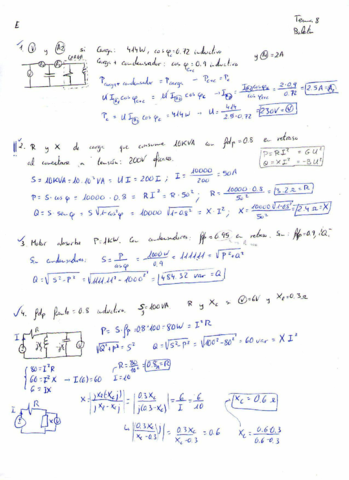 E
Tema 8
1. (V) y (A2) si carga: 414W, cos φ=0.72 inductivo y (A)=2A
Carga + condensador: cos φ=0.9 inductivo
P carga+condensador = P carga → P'c+c = Pc
U I cos φc+c = U I cos φc → I = 2·0.9 / 0.72 = 2.5A = (A2)
Pc = U I cos φc = 414W → U = 414 / 2.5·0.72 = 230V = (V)
2. R y X de carga que consume 10KVA con fdp=0.8 en retraso
al conectarse a tensión: 200V eficaz.
P=RI²=GU²
Q=XI²=-BU²
S=10KVA=10·10³VA=UI=200I; I=10000/200=50A
P=S·cosφ=10000·0.8=RI²=R·50²; R=10000·0.8/50²=3.2Ω=R
Q=S·senφ=S√1-cos²φ=10000√1-0.8²=XI²; X=10000√1-0.8²/50²=2.4Ω=X
3. Motor absorbe P=1kW. Con condensadores: fp=0.95 en retraso. Sin: fp=0.9 ¿Q?
Sin condensadores: S=P/cosφ=1000W/0.9=1111.11=√P²+Q²
Q=√S²-P²=√1111.11²-1000²=484.32 var=Q
4. fdp fuente=0.8 inductivo S=100VA R y Xc (V)=6V y XL=0.3Ω
P=S·fp=0.8·100=80W=I²R
√Q²+P²=S² Q=√S²-P²=√100²-80²=60var=XI²
80=I²R
60=I²X → I(6)=60
6=IX I=10
R=80/10²=0.8Ω=R
X=|jXL(Xcj)/jXL-Xcj|=|0.3Xc/j(0.3-Xc)|=6/I=6/10
Xc=0.6Ω
|0.3Xc j/Xc-0.3|=0.3Xc/Xc-0.3=0.6 Xc=0.6·0.3/0.6-0.3